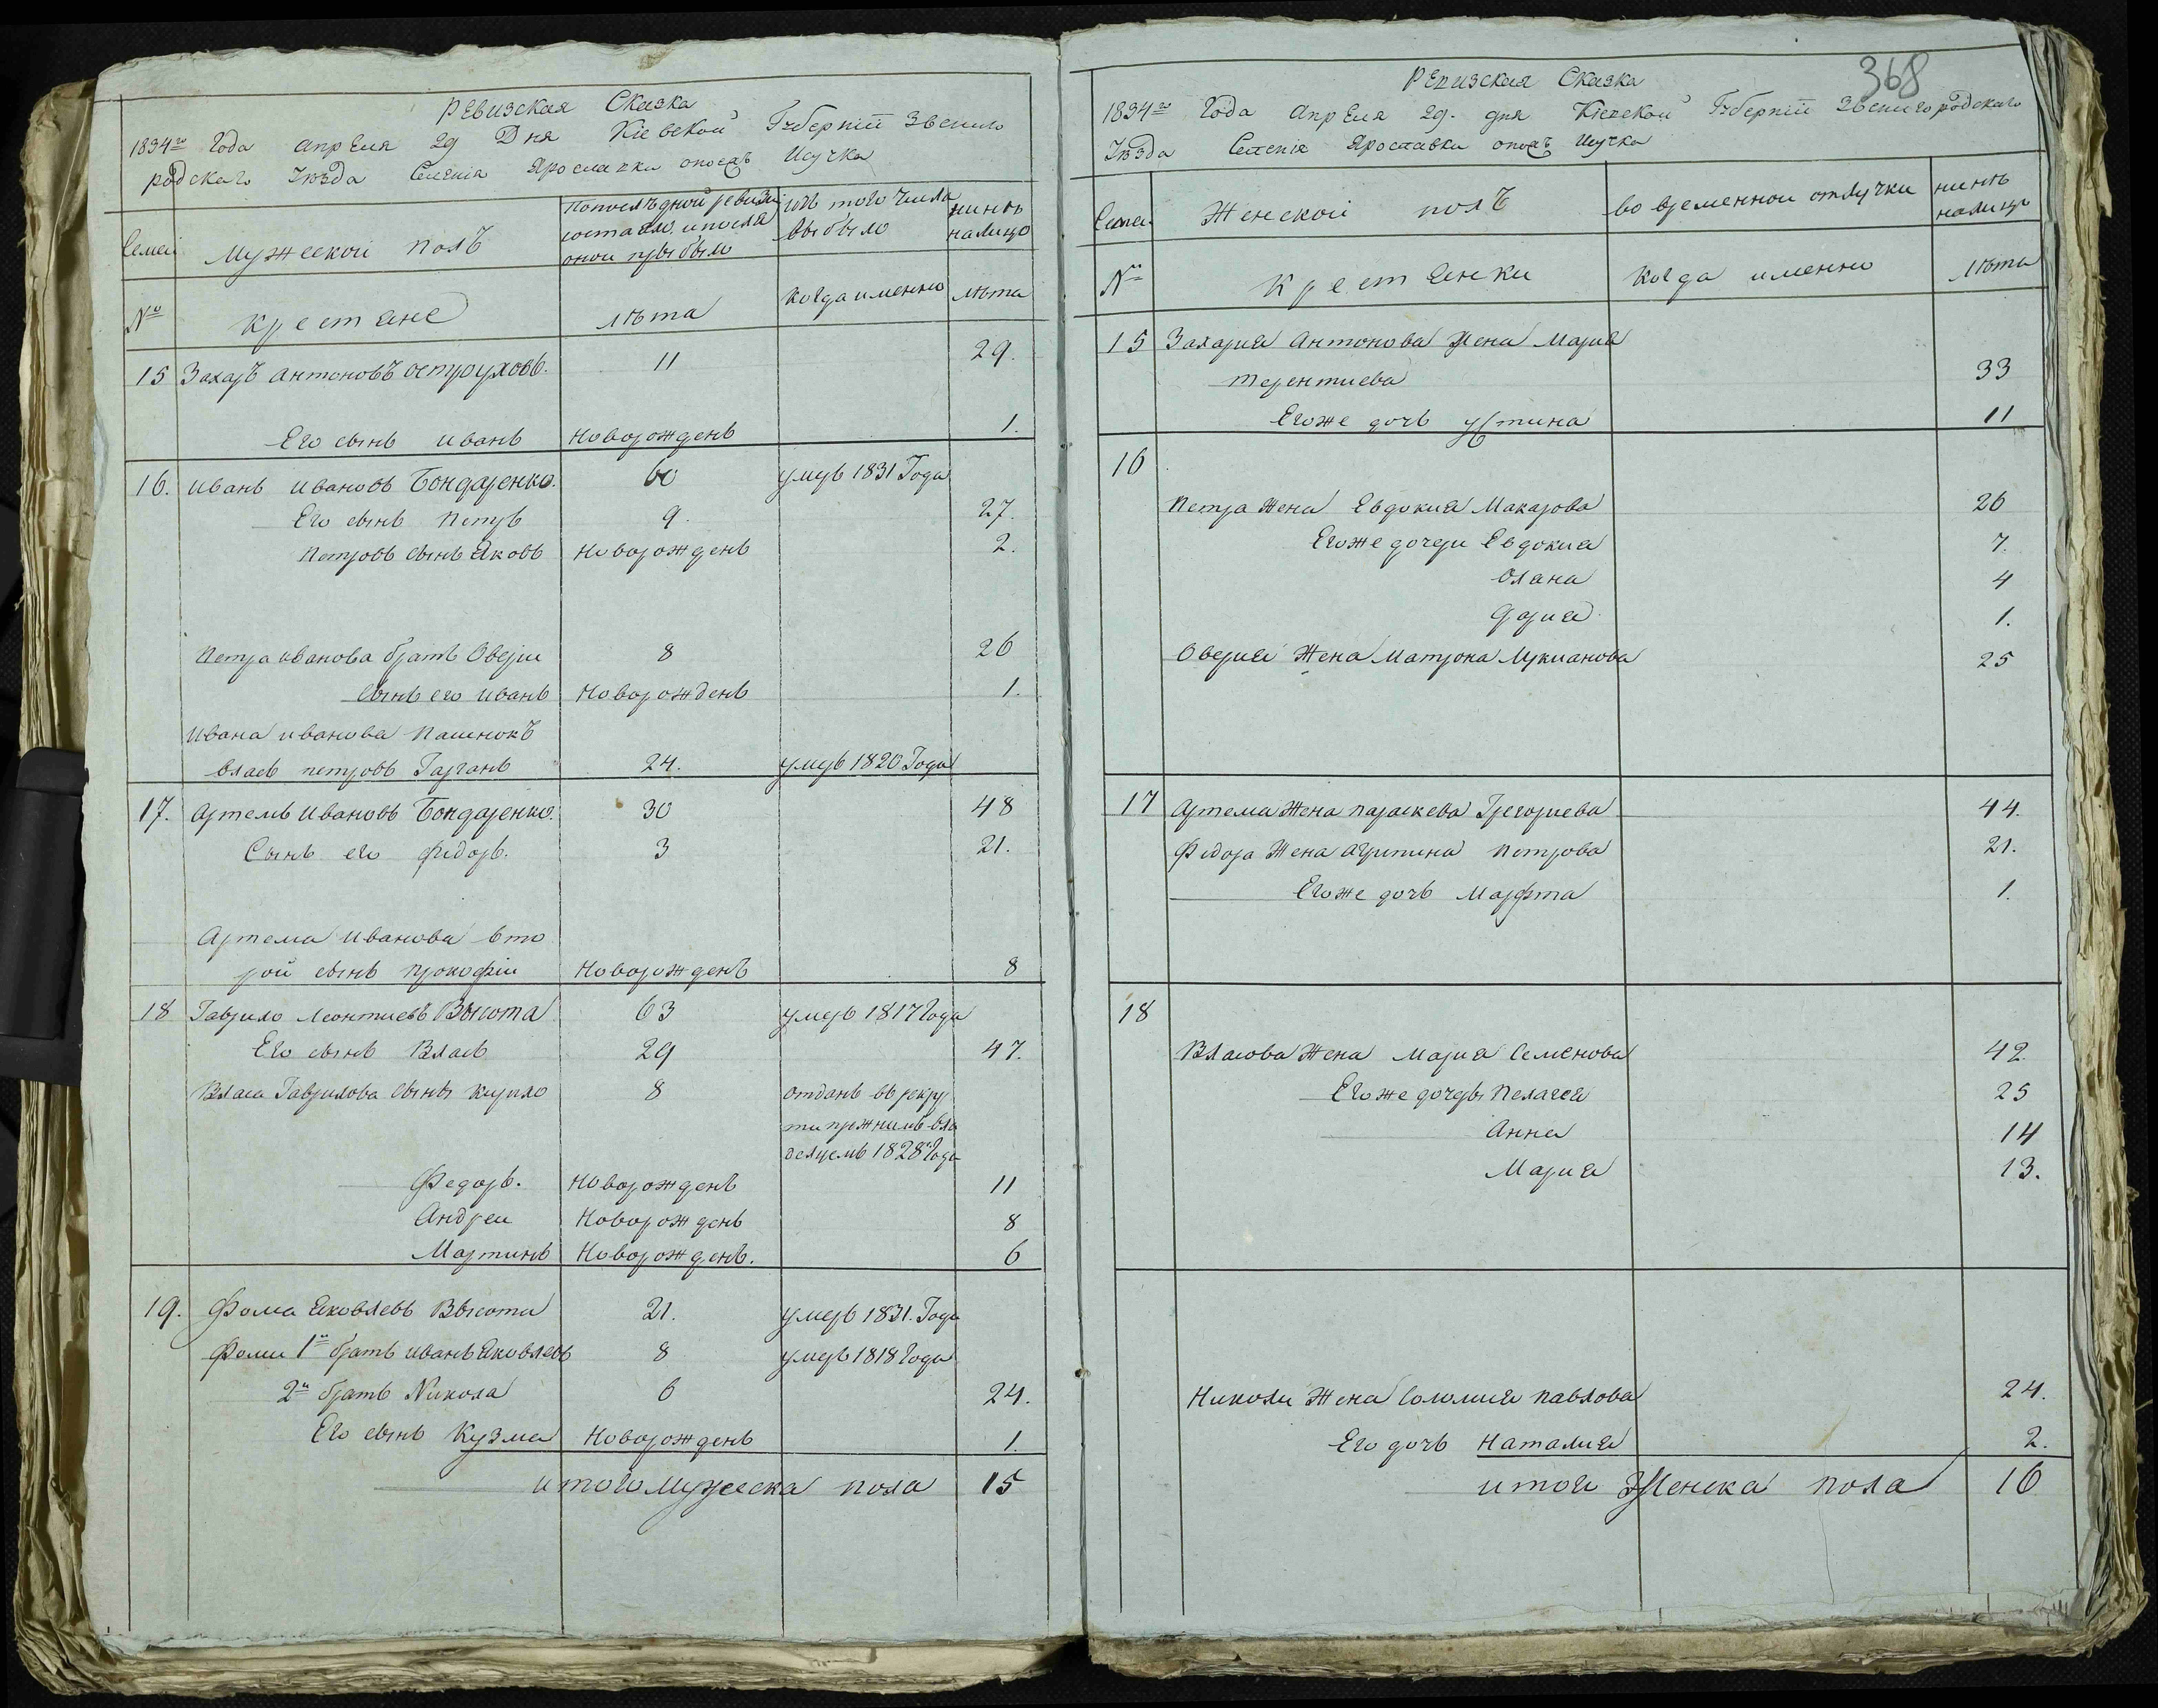 РЕвизская Сказка
1834го Года апрЕля 29 Дня Кіевской Губерніи Звениго
родского Уѣзда Селенія Ярославки
Семеи
Мужеской полЪ
попослѣдной ревизіи
состояло и посля
оной прыбыло
изъ того числа
выбыло
нинѣ
налицо
№
крестяне
лѣта
когда именно
лѣта
15 Захаръ антоновъ остроуховъ. 11 29.
Его сынъ иванъ Новорожденъ 1.
16. иванъ ивановъ Бондаренко. 60 умеръ 1831 Года
Его сынъ петръ 9. 27.
петровъ сынъ Яковъ Новорожденъ 2.
петра иванова братъ Овери 8 26
сынъ его иванъ Новорожденъ 1.
ивана иванова пасинокъ
власъ петровъ Гарганъ 24. умеръ 1820 Года
17. артемъ ивановъ Бондаренко. 30 48
Сынъ его федоръ. 3 21.
Артема иванова вто
рой сынъ прокофіи Новорожденъ 8
18 Гаврило леонтиевъ Высота 63 умеръ 1817 Года
Его сынъ Власъ 29 47.
Власа Гаврилова сынъ кирило 8 отданъ въ рекру
ти прежнимъ вла
делцемъ 1828го Года
Федоръ. Новорожденъ 11
Андреи Новорожденъ 8
Мартинъ Новорожденъ. 6
19. Фома Яковлевъ Высота 21. умеръ 1831. Года
Фоми 1й братъ иванъ Яковлевъ 8 умеръ 1818 Года
2й братъ Никола 6 24.
Его сынъ Кузма Новорожденъ 1.
итого Мужеска пола 15
368
РЕвизская Сказка
1834го Года апрЕля 29. дня Кіевской Губерніи Звенигородского
Уѣзда Селенія Ярославки
Семеи
Женской полЪ
во временной отлучки
нинѣ
налицо
№
крестЯнки
Когда именно
лѣта
15 Захария Антонова Жена Мария
терентиева 33
Егоже дочь устина 11
16
петра Жена Евдокия Макарова 26
Егоже дочери Евдокия 7.
Олана 4
Дария 1.
Оверия Жена Матрона Лукианова 25
17 Артема Жена параскева Грегориева 44.
Федора Жена агрипина петрова 21.
Егоже дочь Марфта 1.
18
Власова Жена Мария Семенова 42
Егоже дочеры Пелагея 25
Анна 14
Мария 13.
Николи Жена Соломия павлова 24.
Его дочь Наталия 2.
итого Женска пола 16